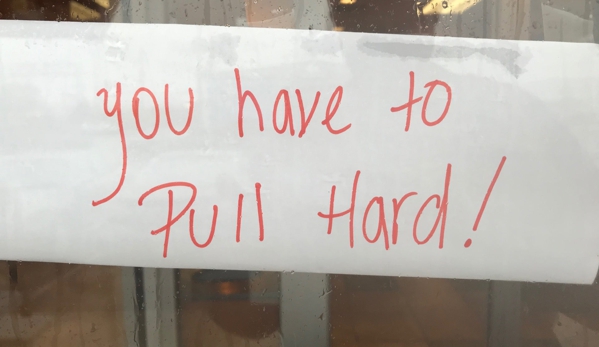 you have to
Pull Hard!